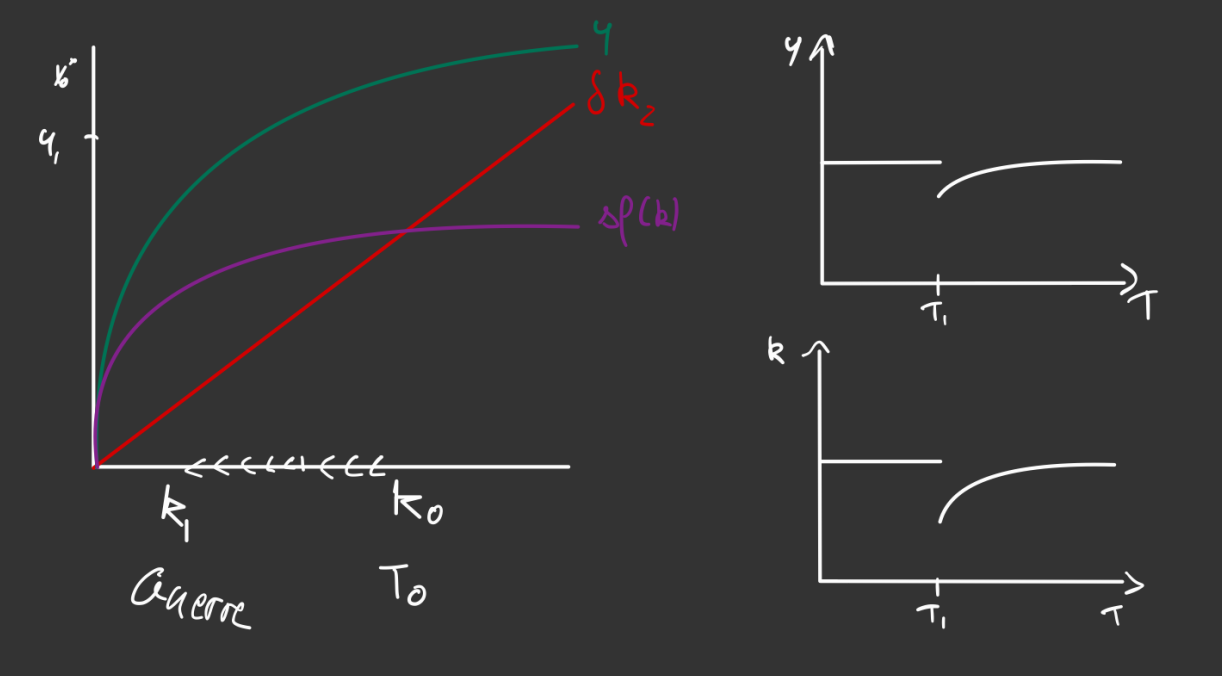 y
δk₂
y₁
sf(k)
k₁
k₀
Guerre
T₀
y
T₁
T
k
T₁
T